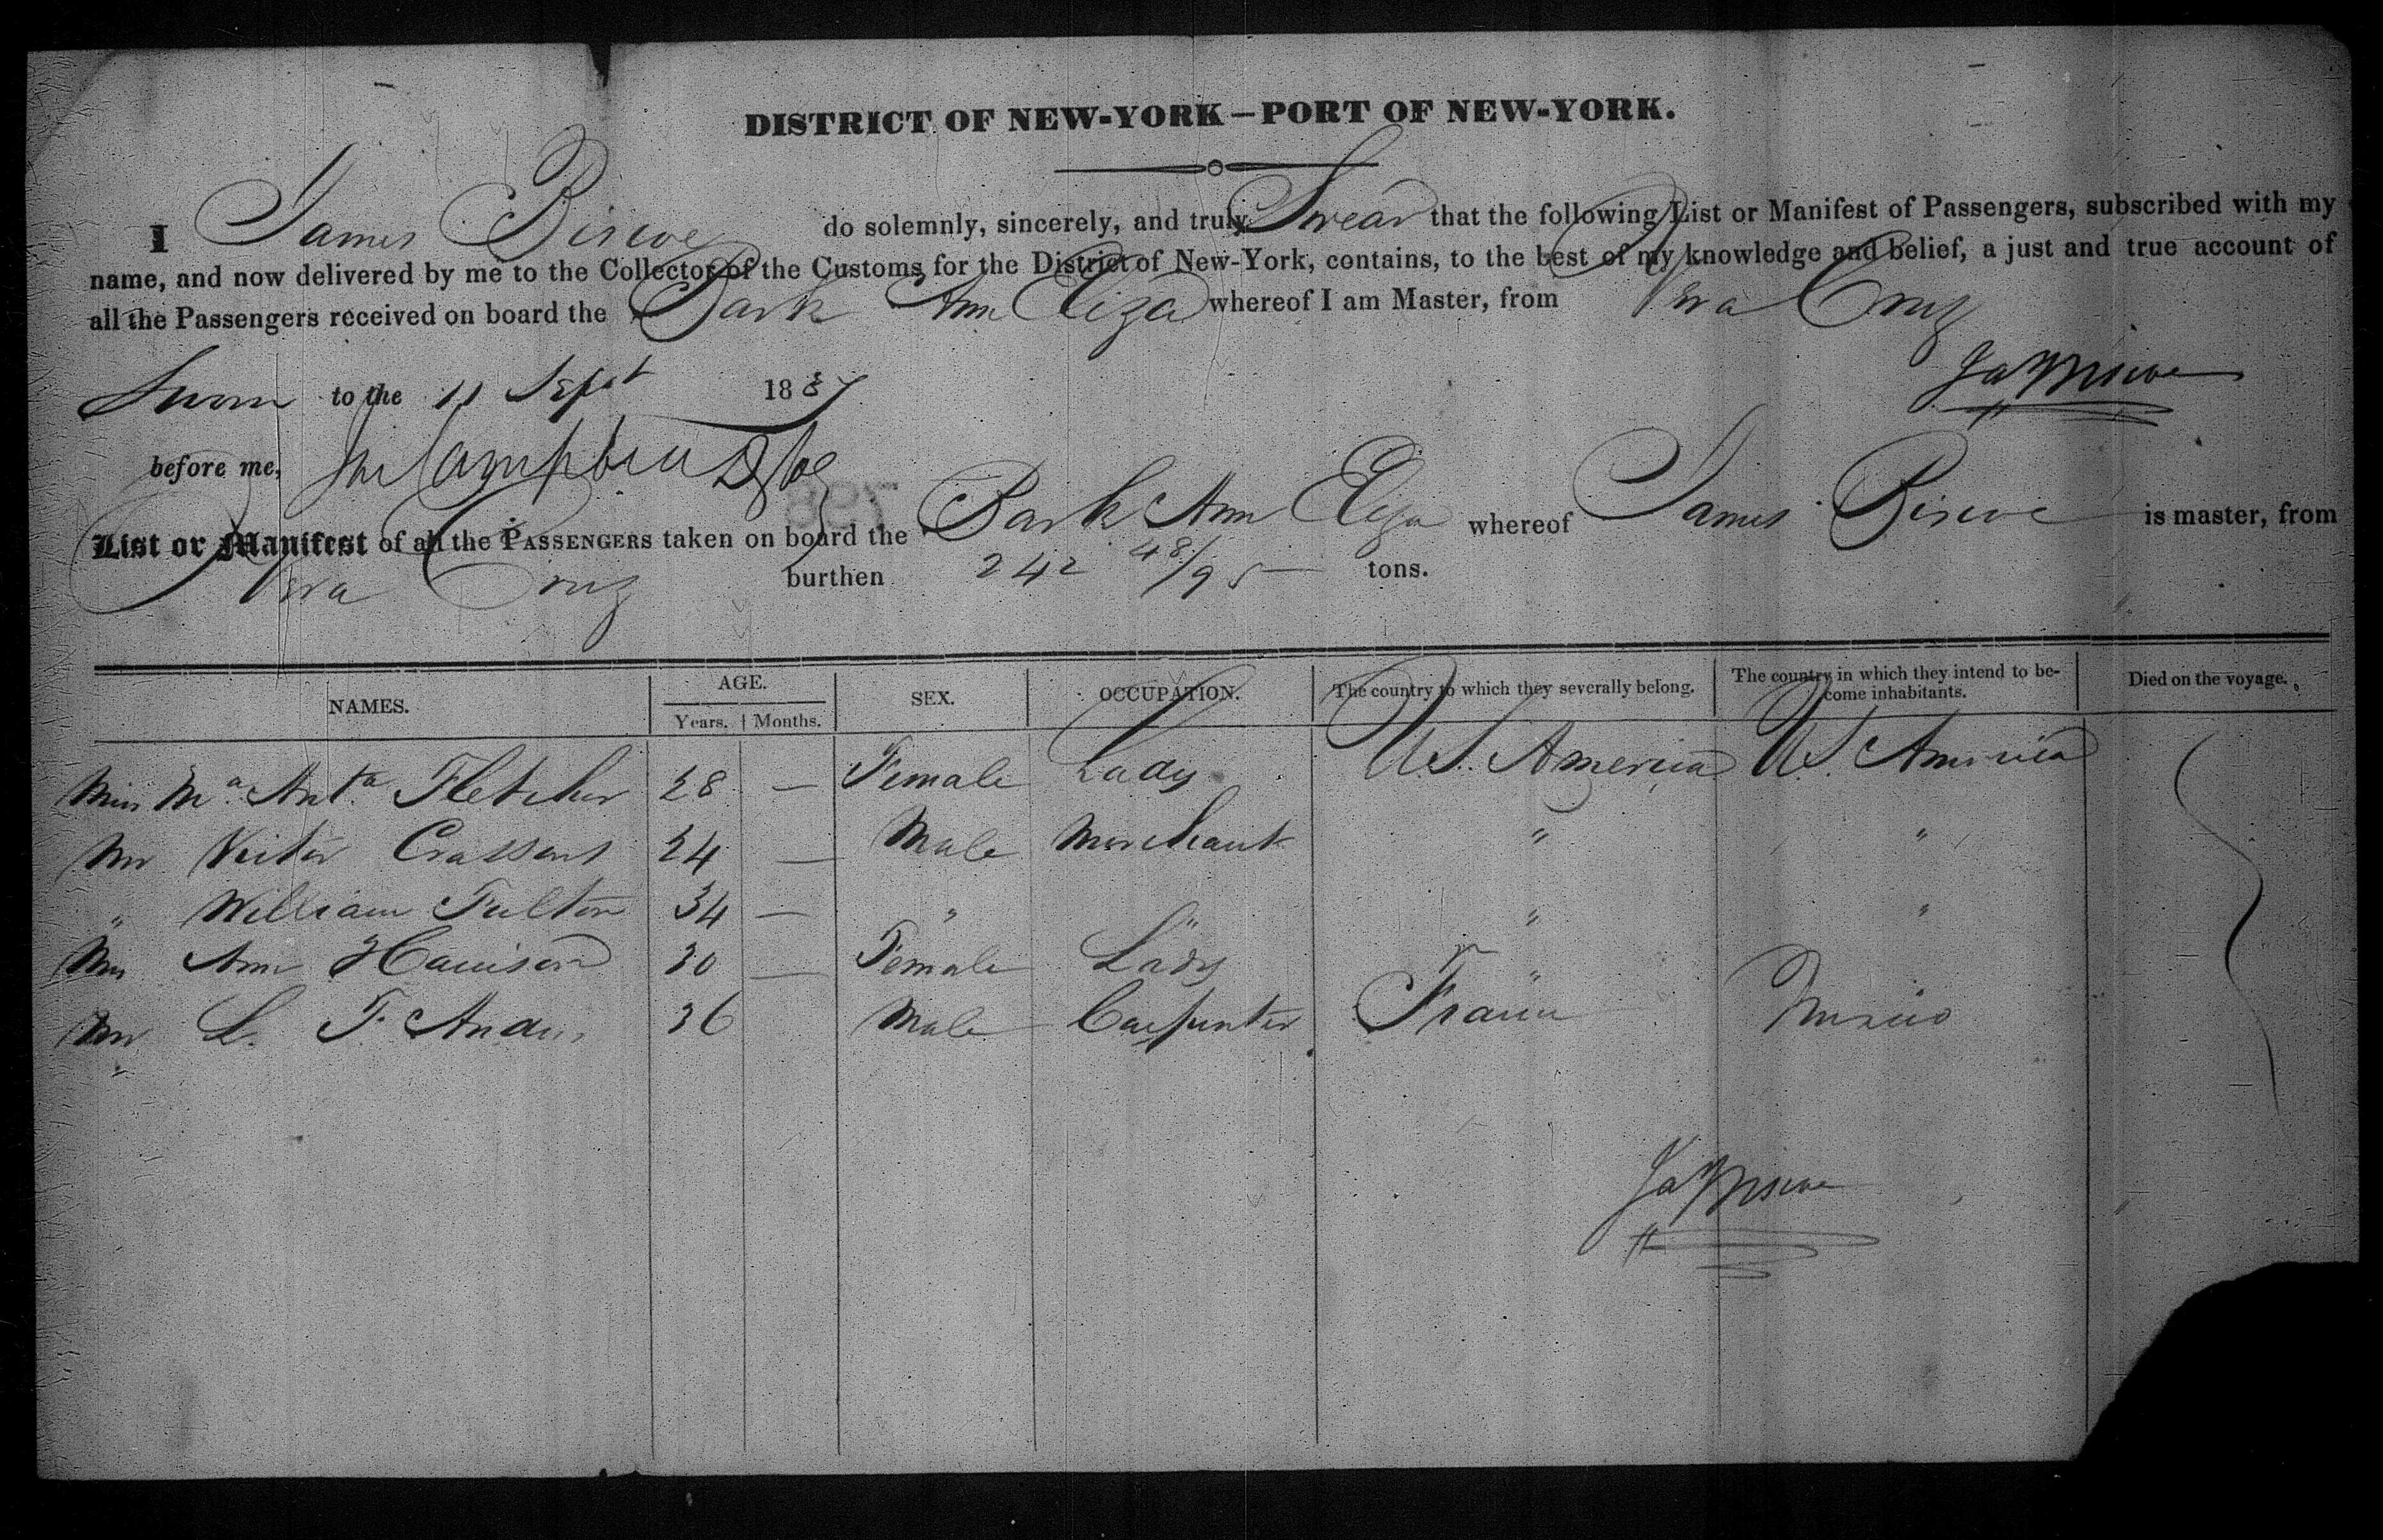 DISTRICT OF NEW-YORK—PORT OF NEW-YORK.
I James Biscoe do solemnly, sincerely, and truly Swear that the following List or Manifest of Passengers, subscribed with my
name, and now delivered by me to the Collector of the Customs for the District of New-York, contains, to the best of my knowledge and belief, a just and true account of
all the Passengers received on board the Bark Ann Eliza whereof I am Master, from Vera Cruz
Jas Biscoe
Sworn to the 11 Sept 1837
before me,
List or Manifest of all the PASSENGERS taken on board the Bark Ann Eliza whereof James Biscoe is master, from
Vera Cruz burthen 242 48/95 tons.
NAMES. AGE. Years. Months. SEX. OCCUPATION. The country to which they severally belong. The country in which they intend to become inhabitants. Died on the voyage.
Miss Ma. Anta Fletcher 28 — Female Lady U.S. America U.S. America
Mr Victor Crassous 24 — Male Merchant " "
" William Fulton 34 — " " " "
Mrs Ann Harrison 30 — Female Lady "
Mr L. F. 36 Male Carpenter France Mexico
Jas Biscoe